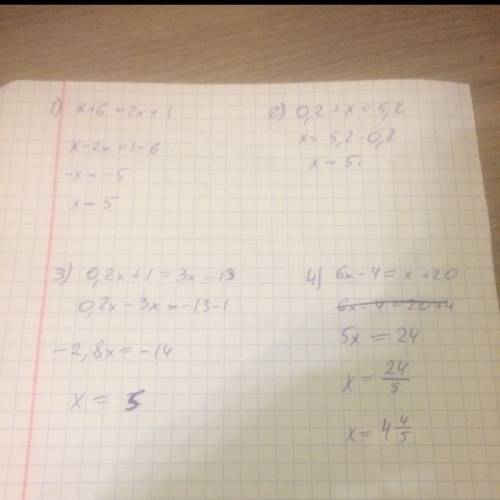 1) x+6=2x+1
x-2x=1-6
-x=-5
x=5
2) 0,2+x=5,2
x=5,2-0,2
x=5
3) 0,2x+1=3x-13
0,2x-3x=-13-1
-2,8x=-14
x=5
4) 6x-4=x+20
6x-4=20+4
5x=24
x=24/5
x=4 4/5